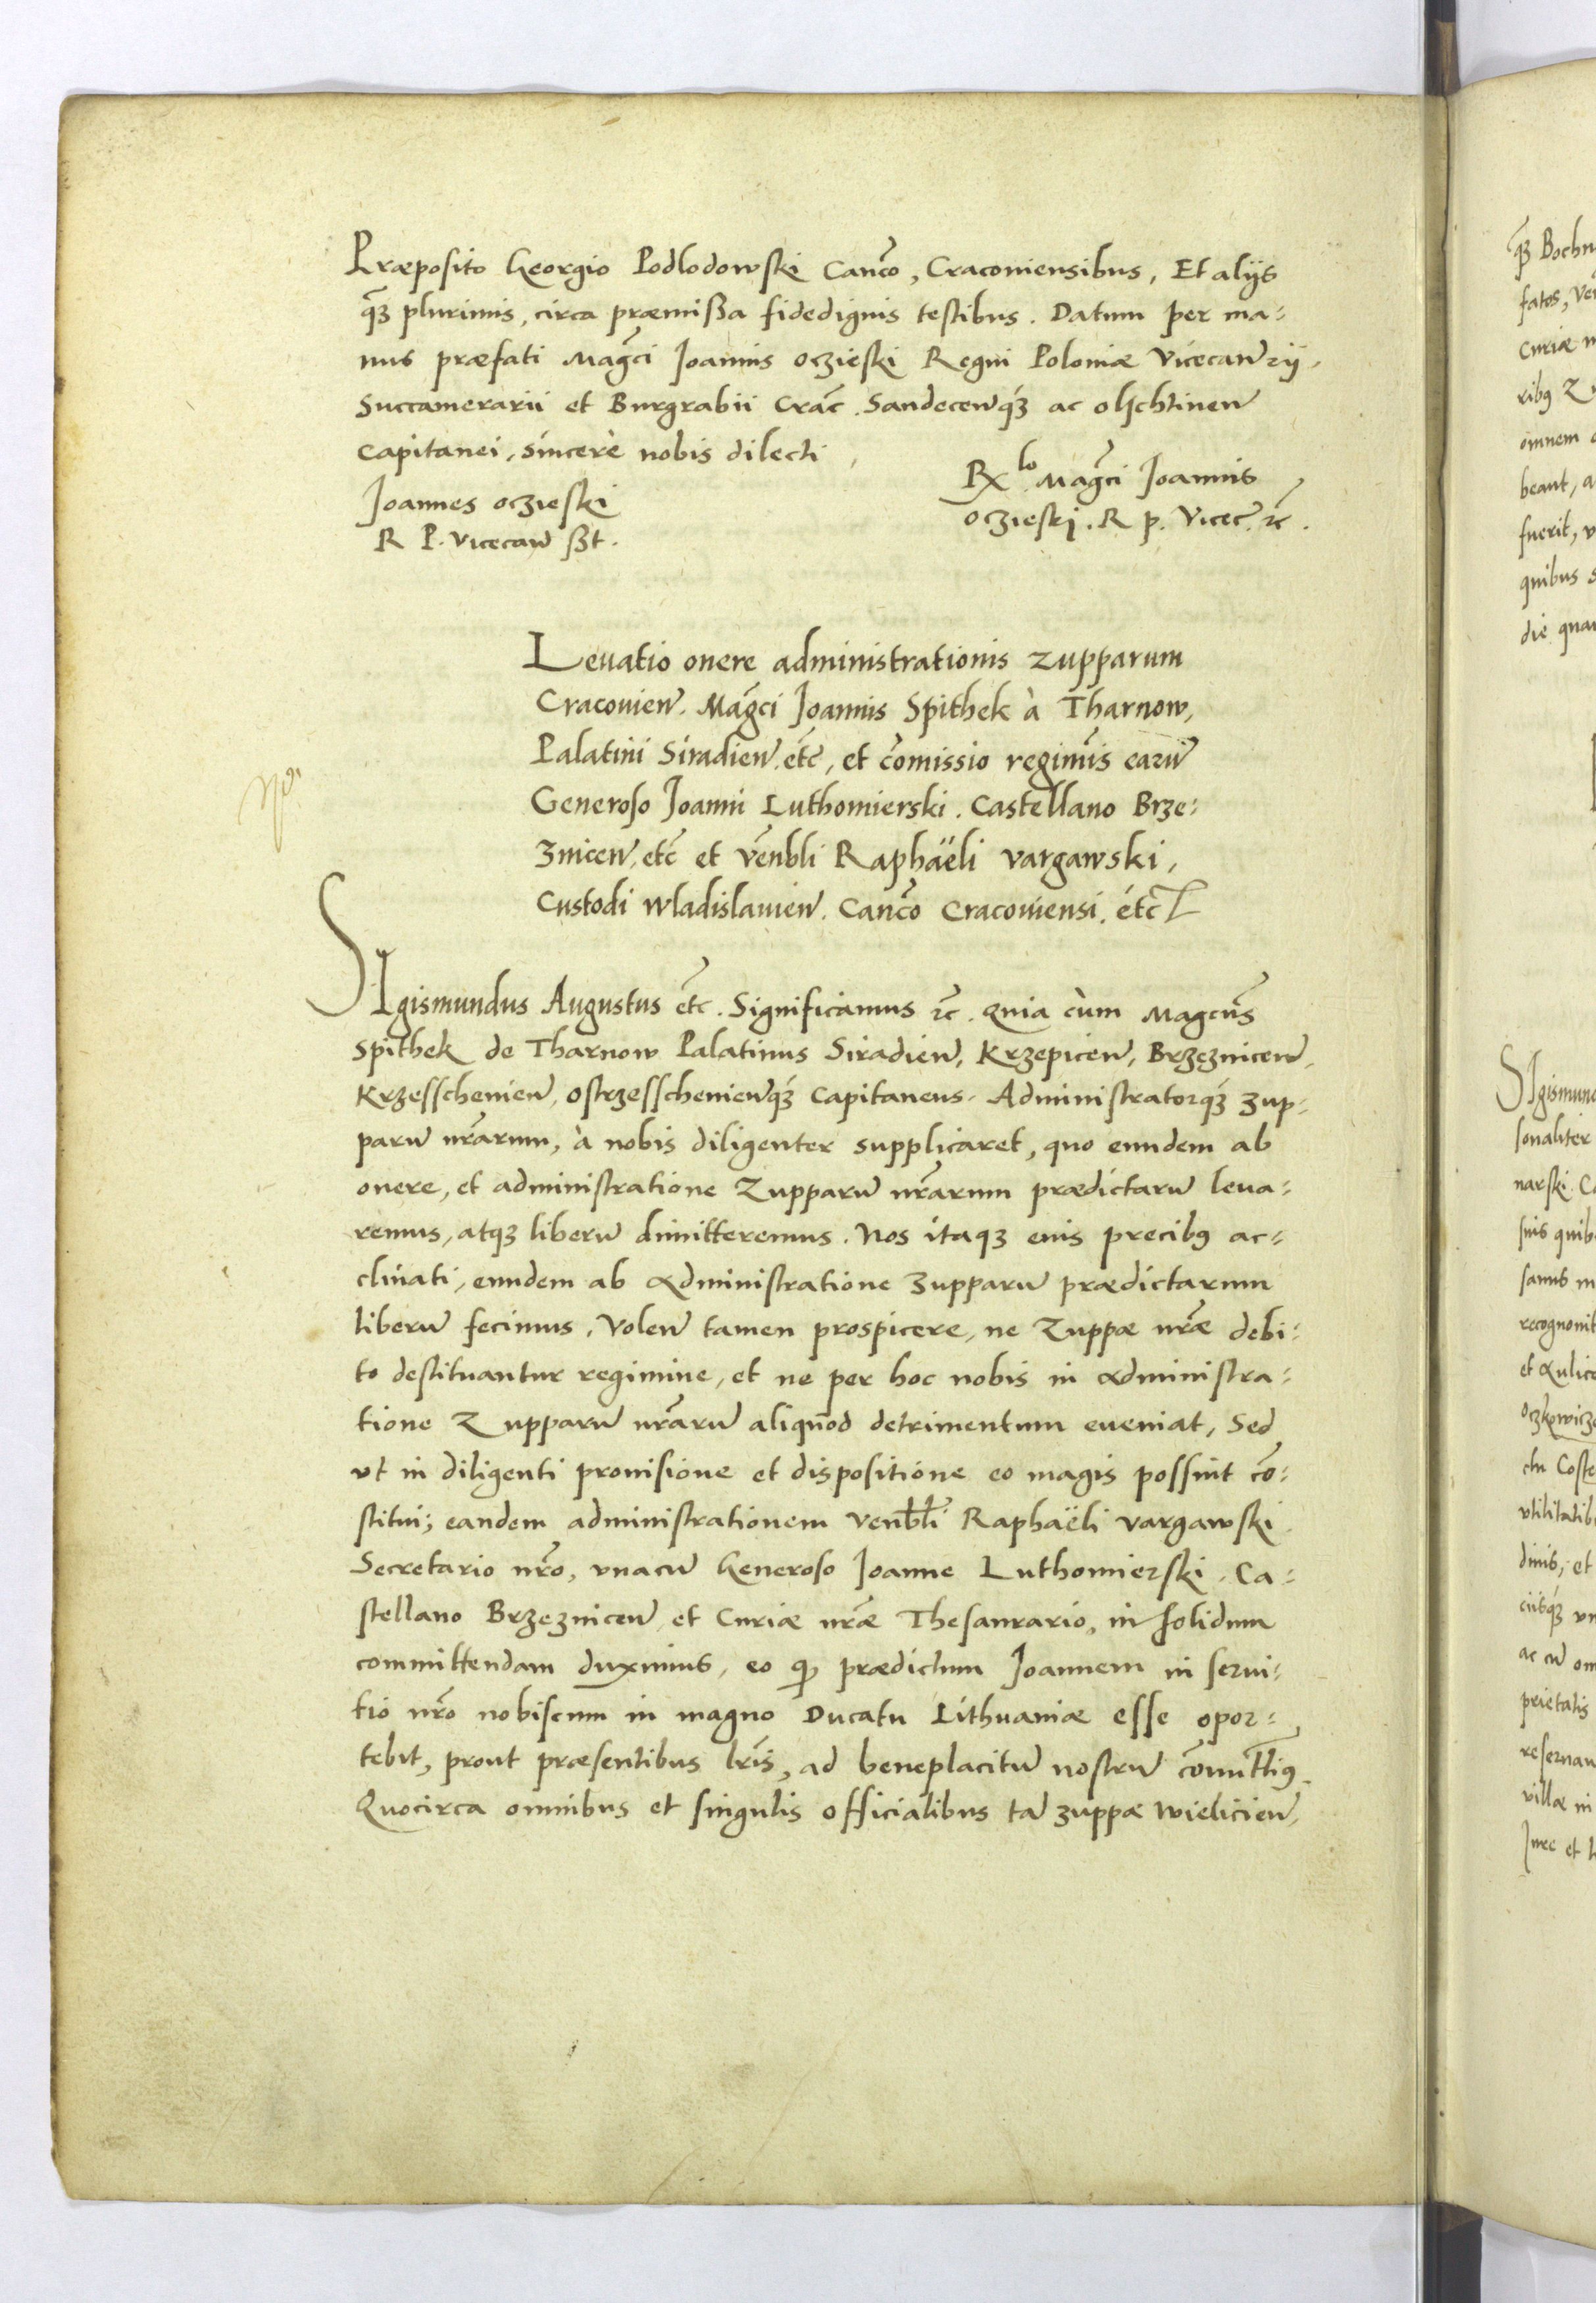 Præposito Georgio Podlodowski Canco͂, Cracouiensibus, Et alijs
q͂ꝫ plurimis, circa præmißa fidedignis testibus. Datum per ma⸗
nus præfati Mag͂ci Joannis Oczieski Regni Poloniæ Vicecan͂rij.
Succamerarii et Burgrabii Crac͂. Sandecen͂q́ꝫ ac Olschtinen͂
Capitanei, sincerè nobis dilecti,
Joannes Oczieski
R P. Vicecan͂ ßt.
Rx lo Mag͂ci Joannis
Oczieski. R p. Vicec͂. ꝛc͂.
Leuatio onere administrationis zupparum
Cracouien͂. Mag͂ci Joannis Spithek à Tharnow,
Palatini Siradien͂. etc͂, et com͂issio regim͂is earu͂
Generoso Joanni Luthomierski. Castellano Brze⸗
znicen͂. etc͂ et Ven͂bli Raphaëli Vargawski,
Custodi Wladislauien͂. Canco͂ Cracouiensi. etc͂
SIgismundus Augustus etc͂. Significamus ꝛc͂. Quia cùm Magcus͂
Spithek de Tharnow Palatinus Siradien͂, Krzepicen͂, Brzeznicen͂.
Krzesschenien͂, Ostrzesschenien͂q́ꝫ Capitaneus. Administratorq́ꝫ zup⸗
paru͂ nr͂arum, à nobis diligenter supplicaret, quo eundem ab
onere, et administratione Zupparu͂ nr͂arum prædictaru͂ leua⸗
remus, atqꝫ liberu͂ dimitteremus. Nos itaqꝫ eius precibꝰ ac⸗
clinati, eundem ab Administratione zupparu͂ prædictarum
liberu͂ fecimus. Volen͂ tamen prospicere, ne Zuppæ nr͂æ debi⸗
to destituantur regimine, et ne per hoc nobis in administra⸗
tione Zupparu͂ nr͂aru͂ aliquod detrimentum eueniat, Sed
vt in diligenti prouisione et dispositione eo magis possint co͂⸗
stitui; eandem administrationem Venb͂li Raphaëli Vargawski
Secretario nr͂o, vnacu͂ Generoso Joanne Luthomierski. Ca⸗
stellano Brzeznicen͂ et Curiæ nr͂æ Thesaurario, in solidum
committendam duximus, eo qꝫ prædictum Joannem in serui⸗
tio nr͂o nobiscum in magno Ducatu Lithuaniæ esse opor⸗
tebit, prout præsentibus lr͂is, ad beneplacitu͂ nostru͂ com͂ittimꝰ.
Quocirca omnibus et singulis officialibus ta͂ zuppæ Wielicien͂,